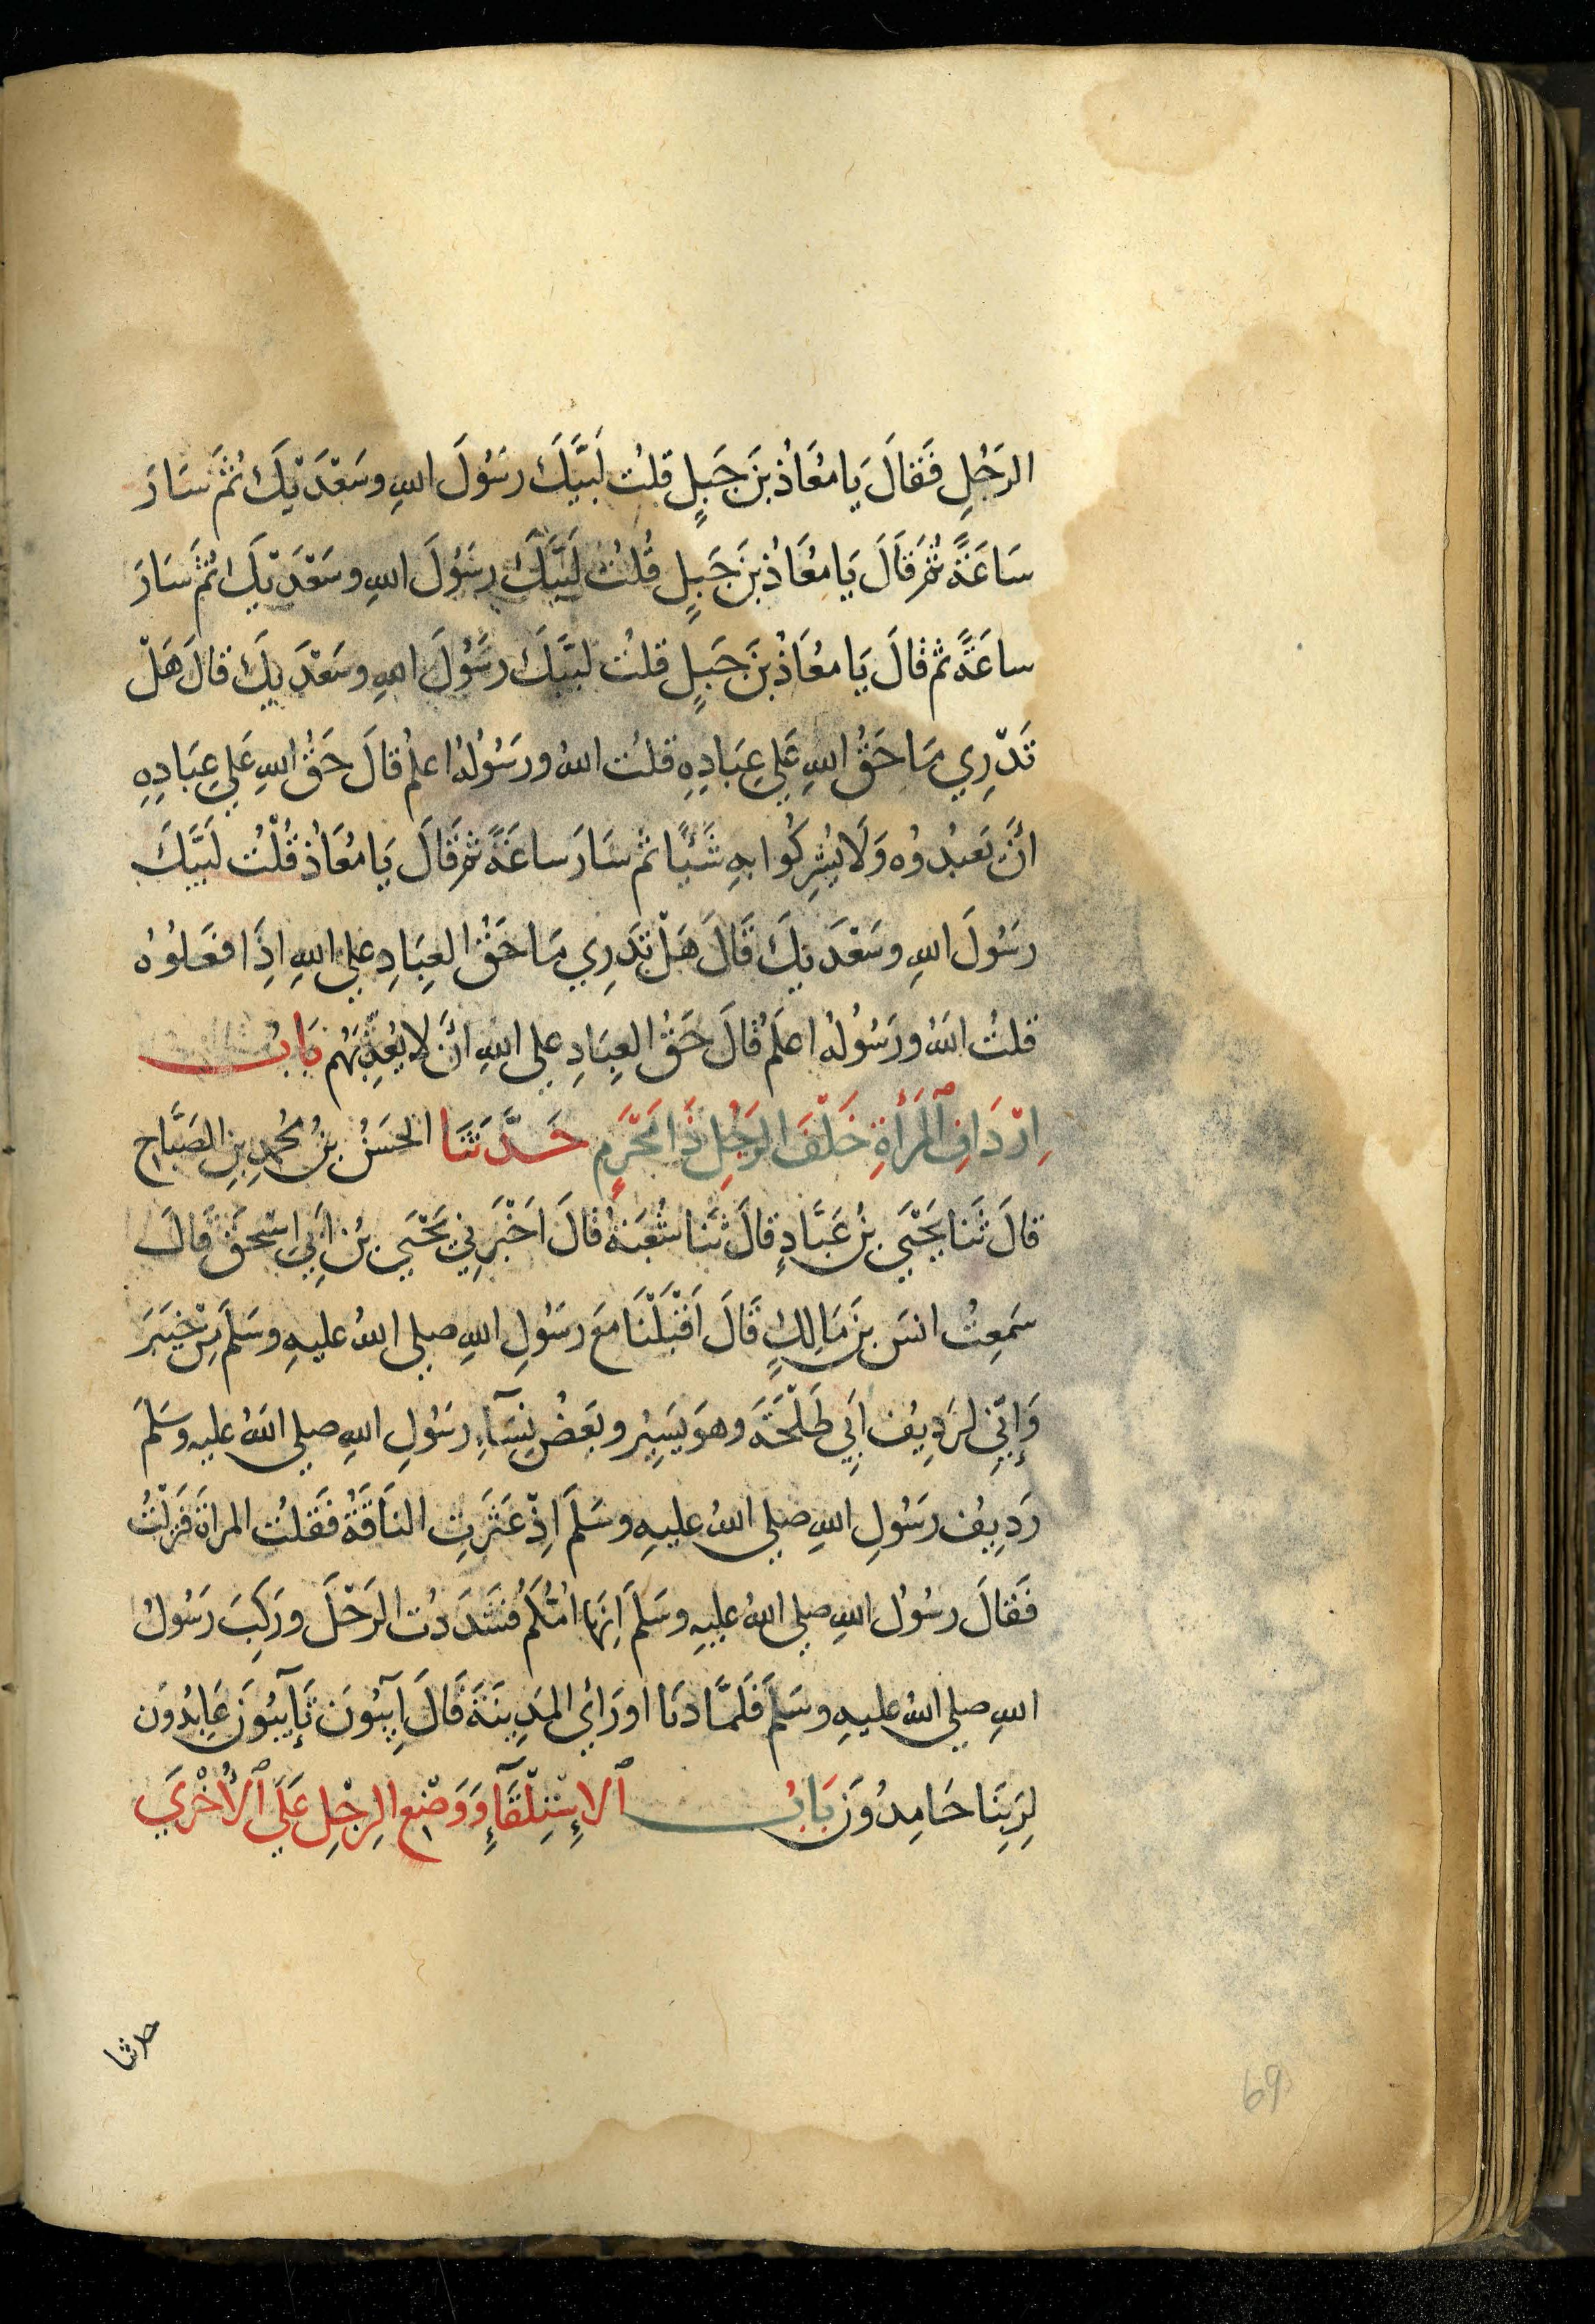 الرَجُلِ فَقَالَ يَا مُعَاذُ بنَ جَبَلٍ قلتُ لَبَّيَّكَ رسُولَ اللهِ وسَعْدَيْكَ ثُمَّ سَارَ
سَاعَةً ثُمَّ قَالَ يَا مُعَاذُ بنَ جَبَلٍ قُلتُ لَبَّيَّكَ رسُولَ اللهِ وسَعْدَيْكَ ثُمَّ سَارَ
ساعَةً ثم قالَ يَا مُعَاذُ بنَ جَبَلٍ قلتُ لبَّيَّكَ رسُولَ اللهِ وسَعْدَيكَ قالَ هَلْ
تَدْرِي مَا حَقُّ اللهِ عَلي عِبَادِهِ قلتُ اللهُ ورسُولهُ اعلمُ قالَ حَقُّ اللهِ عَلي عِبَادِهِ
انَّ يَعبُدُوُه وَلَا يُشرِكُوا بهِ شَيْئًا ثم سَارَ ساعَةً ثمَّ قَالَ يَا مُعَاذُ قُلْتُ لَبَيَّكَ
رسُولَ اللهِ وسَعْدَيكَ قَالَ هَلْ تَدرِي مَا حَقُّ العِبَادِ علي اللهِ اِذَا فعَلوُهُ
قلتُ اللهُ ورسُولهُ اعلَمُ قَالَ حَقُّ العِبَادِ علي اللهِ انَّ لا يُعَذِّبَهُم بَابُ
اِرْدَافِ ٱلمَرْأَةِ خَلْفَ الرَجُلِ ذَا مَحْرَمٍ حَدَّثَنَا الحَسَنُ بنُ مُحمدِ بنِ الصَبَّاحِ
قالَ ثَنا يَحْيَي بنُ عَبَّادٍ قالَ ثَنا شُعبَةُ قالَ اَخْبَرِني يَحْيَي بنُ اَبِي اسْحقَ قَالَ
سَمِعتُ انسَ بنَ مَالِكٍ قَالَ اَقْبَلْنَا مَعَ رسُولِ اللهِ صلي اللهُ عليهِ وسَلَمَ مِنْ خيبَرَ
وَإنِّي لَرَدِيفُ اَبِي طَلْحَةَ وهوَ يَسِيْرُ وبَعضُ نِسَآءِ رسُولِ اللهِ صلي اللهُ عليهِ وسَلمَ
رَدِيفُ رسُولِ اللهِ صلي اللهُ عليهِ وسَلَمَ اِذْ عَثَرَتِ النَاقَةُ فَقلتُ المراةَ فَنزَلْتُ
فَقَالَ رسُولُ اللهِ صلي اللهُ عليهِ وسَلَمَ اِنَّهَا امُّكُمُ فَشَدَدتُ الرَحْلَ ورَكِبَ رَسُولُ
اللهِ صلي اللهُ عليهِ وسَلَمَ فَلَمَّا دَنَا اورَاي المَدِينَةَ قَالَ آيِبُونَ تَآيِبُونَ عَابِدُونَ
لِرَبِنَا حَامِدُونَ بَابُ ٱلاِسْتِلْقَآءِ وَوَضْعِ الرِجْلِ عَلَي ٱلاُخْرَي
حدثنا
69